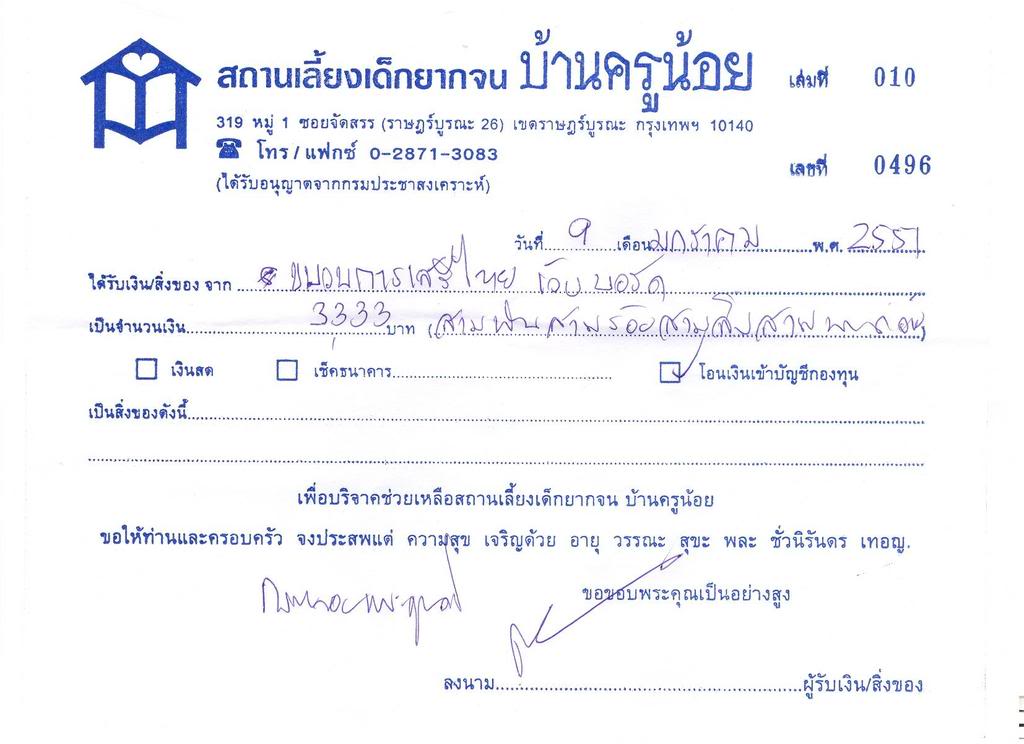 สถานเลี้ยงเด็กยากจน บ้านครูน้อย เล่มที่ 010
319 หมู่ 1 ซอยจัดสรร (ราษฎร์บูรณะ 26) เขตราษฎร์บูรณะ กรุงเทพฯ 10140
โทร/แฟกซ์ 0-2871-3083
เลขที่ 0496
(ได้รับอนุญาตจากกรมประชาสงเคราะห์)
วันที่ 9 เดือน มกราคม พ.ศ. 2551
ได้รับเงิน/สิ่งของ จาก ขบวนการเสรีไทย เว็บบอร์ด
เป็นจำนวนเงิน 3333 บาท (สามพันสามร้อยสามสิบสามบาทถ้วน)
เงินสด เช็คธนาคาร โอนเงินเข้าบัญชีกองทุน
เป็นสิ่งของดังนี้
เพื่อบริจาคช่วยเหลือสถานเลี้ยงเด็กยากจน บ้านครูน้อย
ขอให้ท่านและครอบครัว จงประสพแต่ ความสุข เจริญด้วย อายุ วรรณะ สุขะ พละ ชั่วนิรันดร เทอญ.
ขอขอบพระคุณเป็นอย่างสูง
ลงนาม ผู้รับเงิน/สิ่งของ